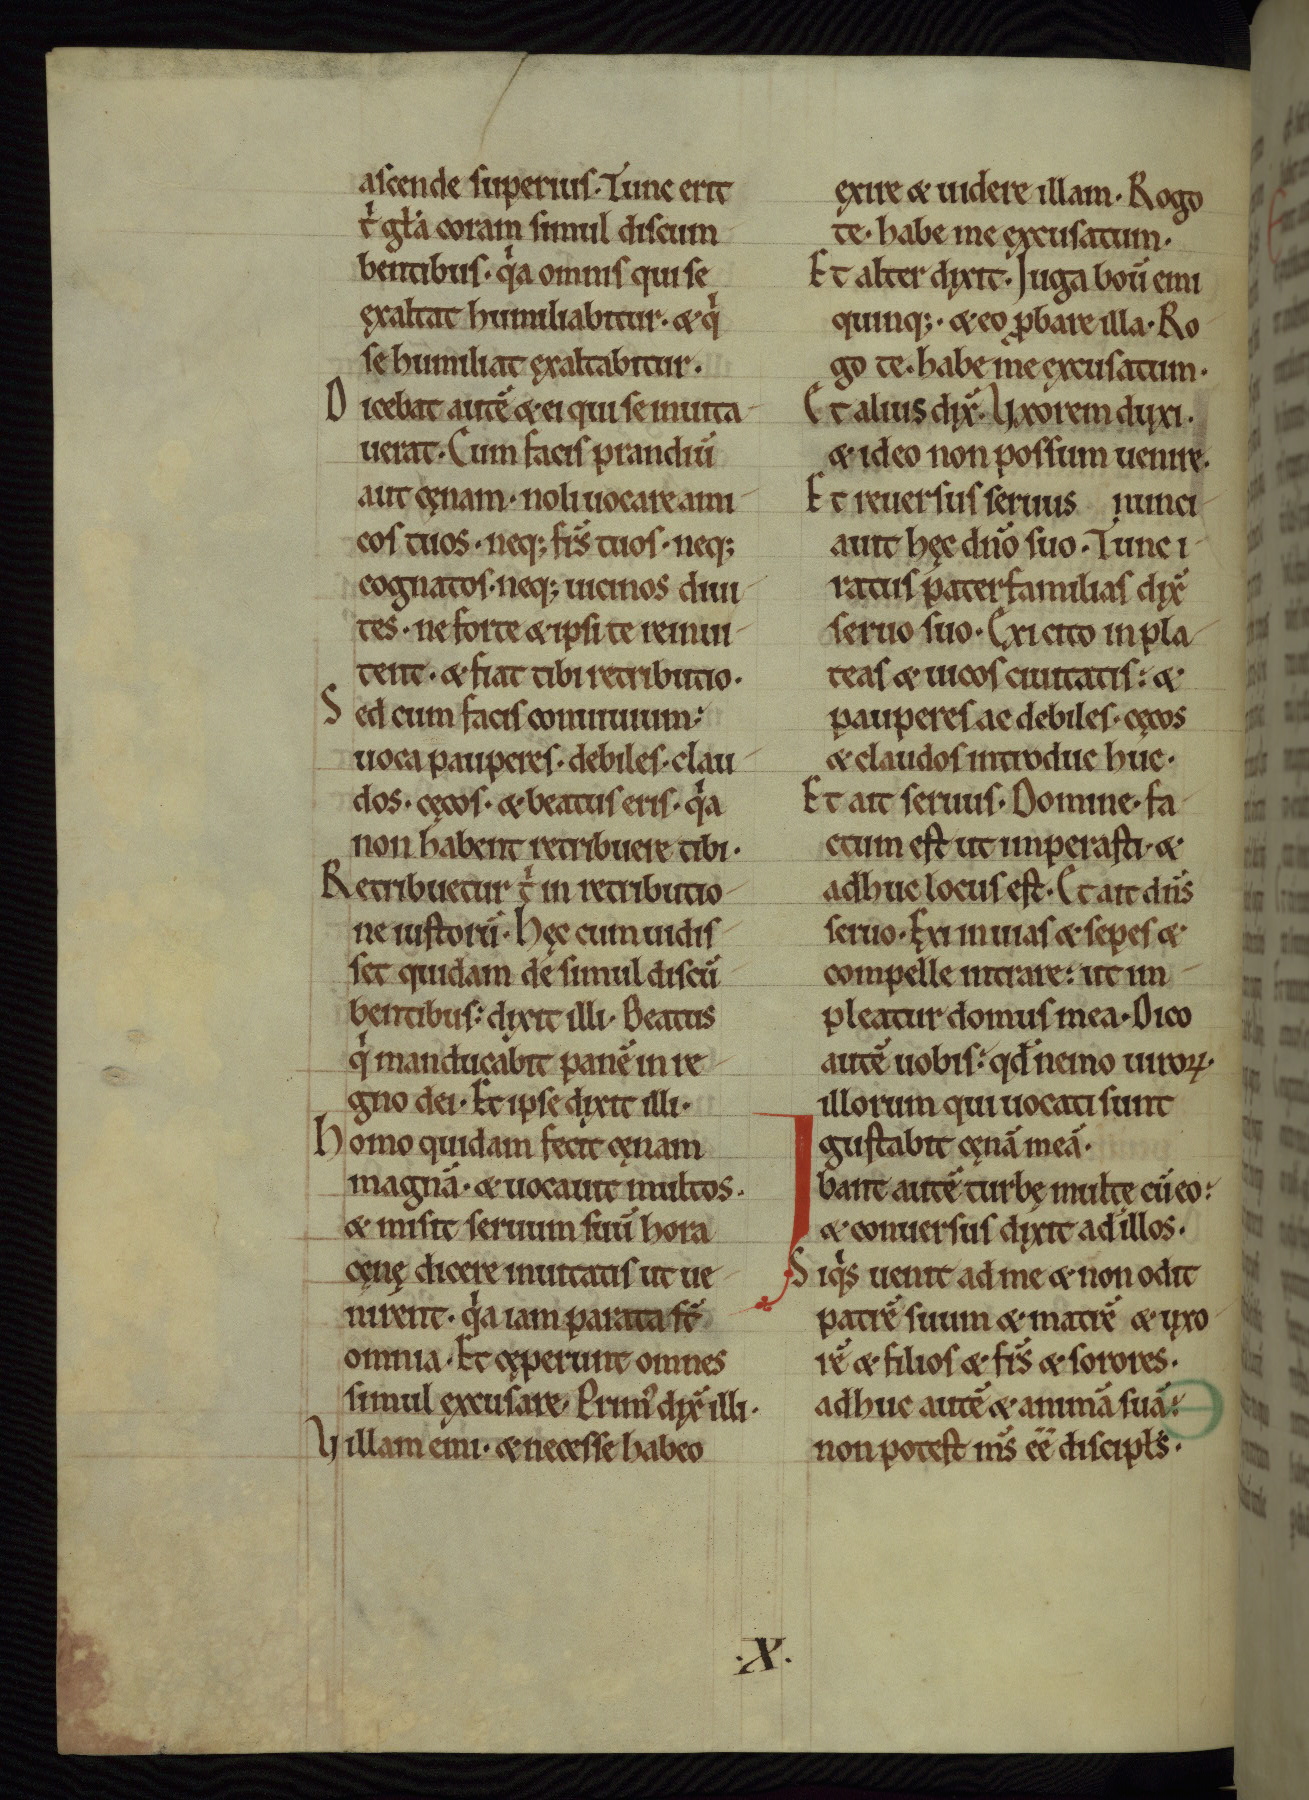 ascende superius. Tunc erit
t̍ gła̍ coram simul discum
bentibus. q̍a omnis qui se
ęxaltat humiliabitur. & q̍
se humiliat ęxaltabitur.
Dicebat autē & ei qui se inuita
uerat. Cum facis prandiū
aut cęnam. noli uocare ami
cos tuos. neq; fr̄s tuos. neq;
cognatos. neq; uicinos diui
tes. ne forte & ipsi te reinui
tent. & fiat tibi retributio.
Sed cum facis conuiuium;
uoca pauperes. debiles. clau
dos. cęcos. & beatus eris. q̍a
non habent retribuere tibi.
Retribuetur t̍ in retributio
ne iustorū. Hęc cum uidis
set quidam de simul discū
bentibus: dixit illi. Beatus
q̍ manducabit panē in re
gno dei. Et ipse dixit illi.
Homo quidam fecit cęnam
magnā. & uocauit multos.
& misit seruum suū hora
cęnę dicere inuitatis ut ue
nirent. q̍a iam parata st̄
omnia. Et cęperunt omnes
simul ęxcusare. Primꝰ dix̄ illi.
Villam emi. & necesse habeo
ęxire & uidere illam. Rogo
te. habe me ęxcusatum.
Et alter dixit. Iuga boū emi
quinq;. & eo ꝓbare illa. Ro
go te. habe me ęxcusatum.
Et alius dix̄. Vxorem duxi.
& ideo non possum uenire.
Et reuersus seruus nunci
auit hęc dn̄o suo. Tunc i
ratus paterfamilias dix̄
seruo suo. Exi cito in pla
teas & uicos ciuitatis: &
pauperes ac debiles. cęcos
& claudos introduc huc.
Et ait seruus. Domine. fa
ctum est ut imperasti. &
adhuc locus est. Et ait dn̄s
seruo. Exi in uias & sepes &
compelle intrare: ut im
pleatur domus mea. Dico
autē uobis: qđ nemo uiroꝝ.
illorum qui uocati sunt
gustabit cęnā meā.
Ibant autē turbę multę cū eo:
& conuersus dixit ad illos.
Si q̍s uenit ad me & non odit
patrē suum & matrē & uxo
rē & filios & fr̄s & sorores.
adhuc autē & animā suā:
non potest m̄s eē discipłs.
.X.